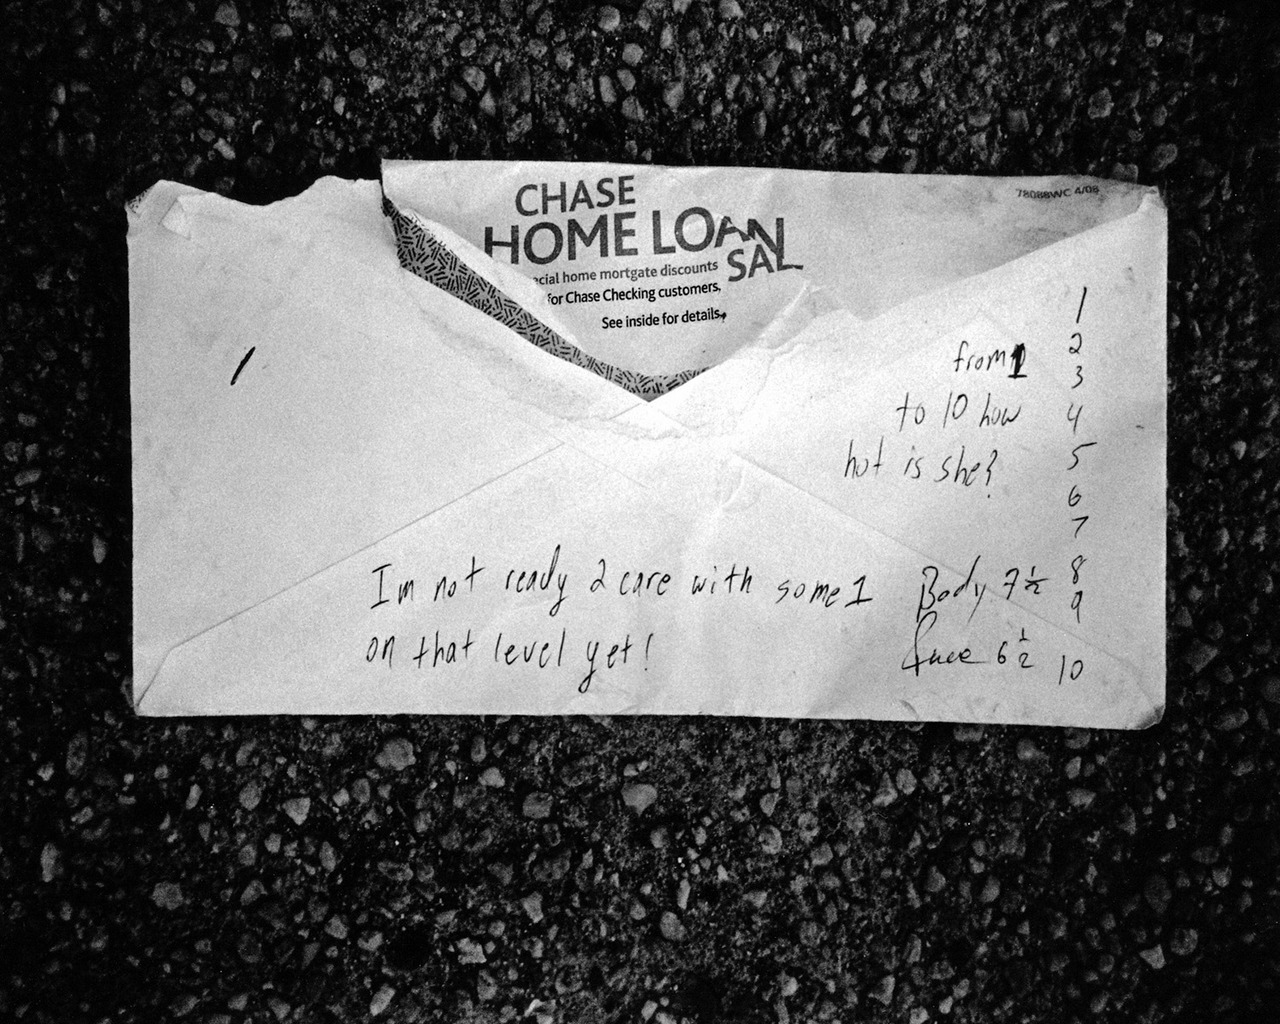 CHASE
HOME LOAN
SAL
ecial home mortgate discounts
for Chase Checking customers.
See inside for details.
78088WC 4/08
from 1
to 10 how
hot is she?
1
2
3
4
5
6
7
8
9
10
Im not ready 2 care with some 1
on that level yet!
Body 7 1/2
face 6 1/2